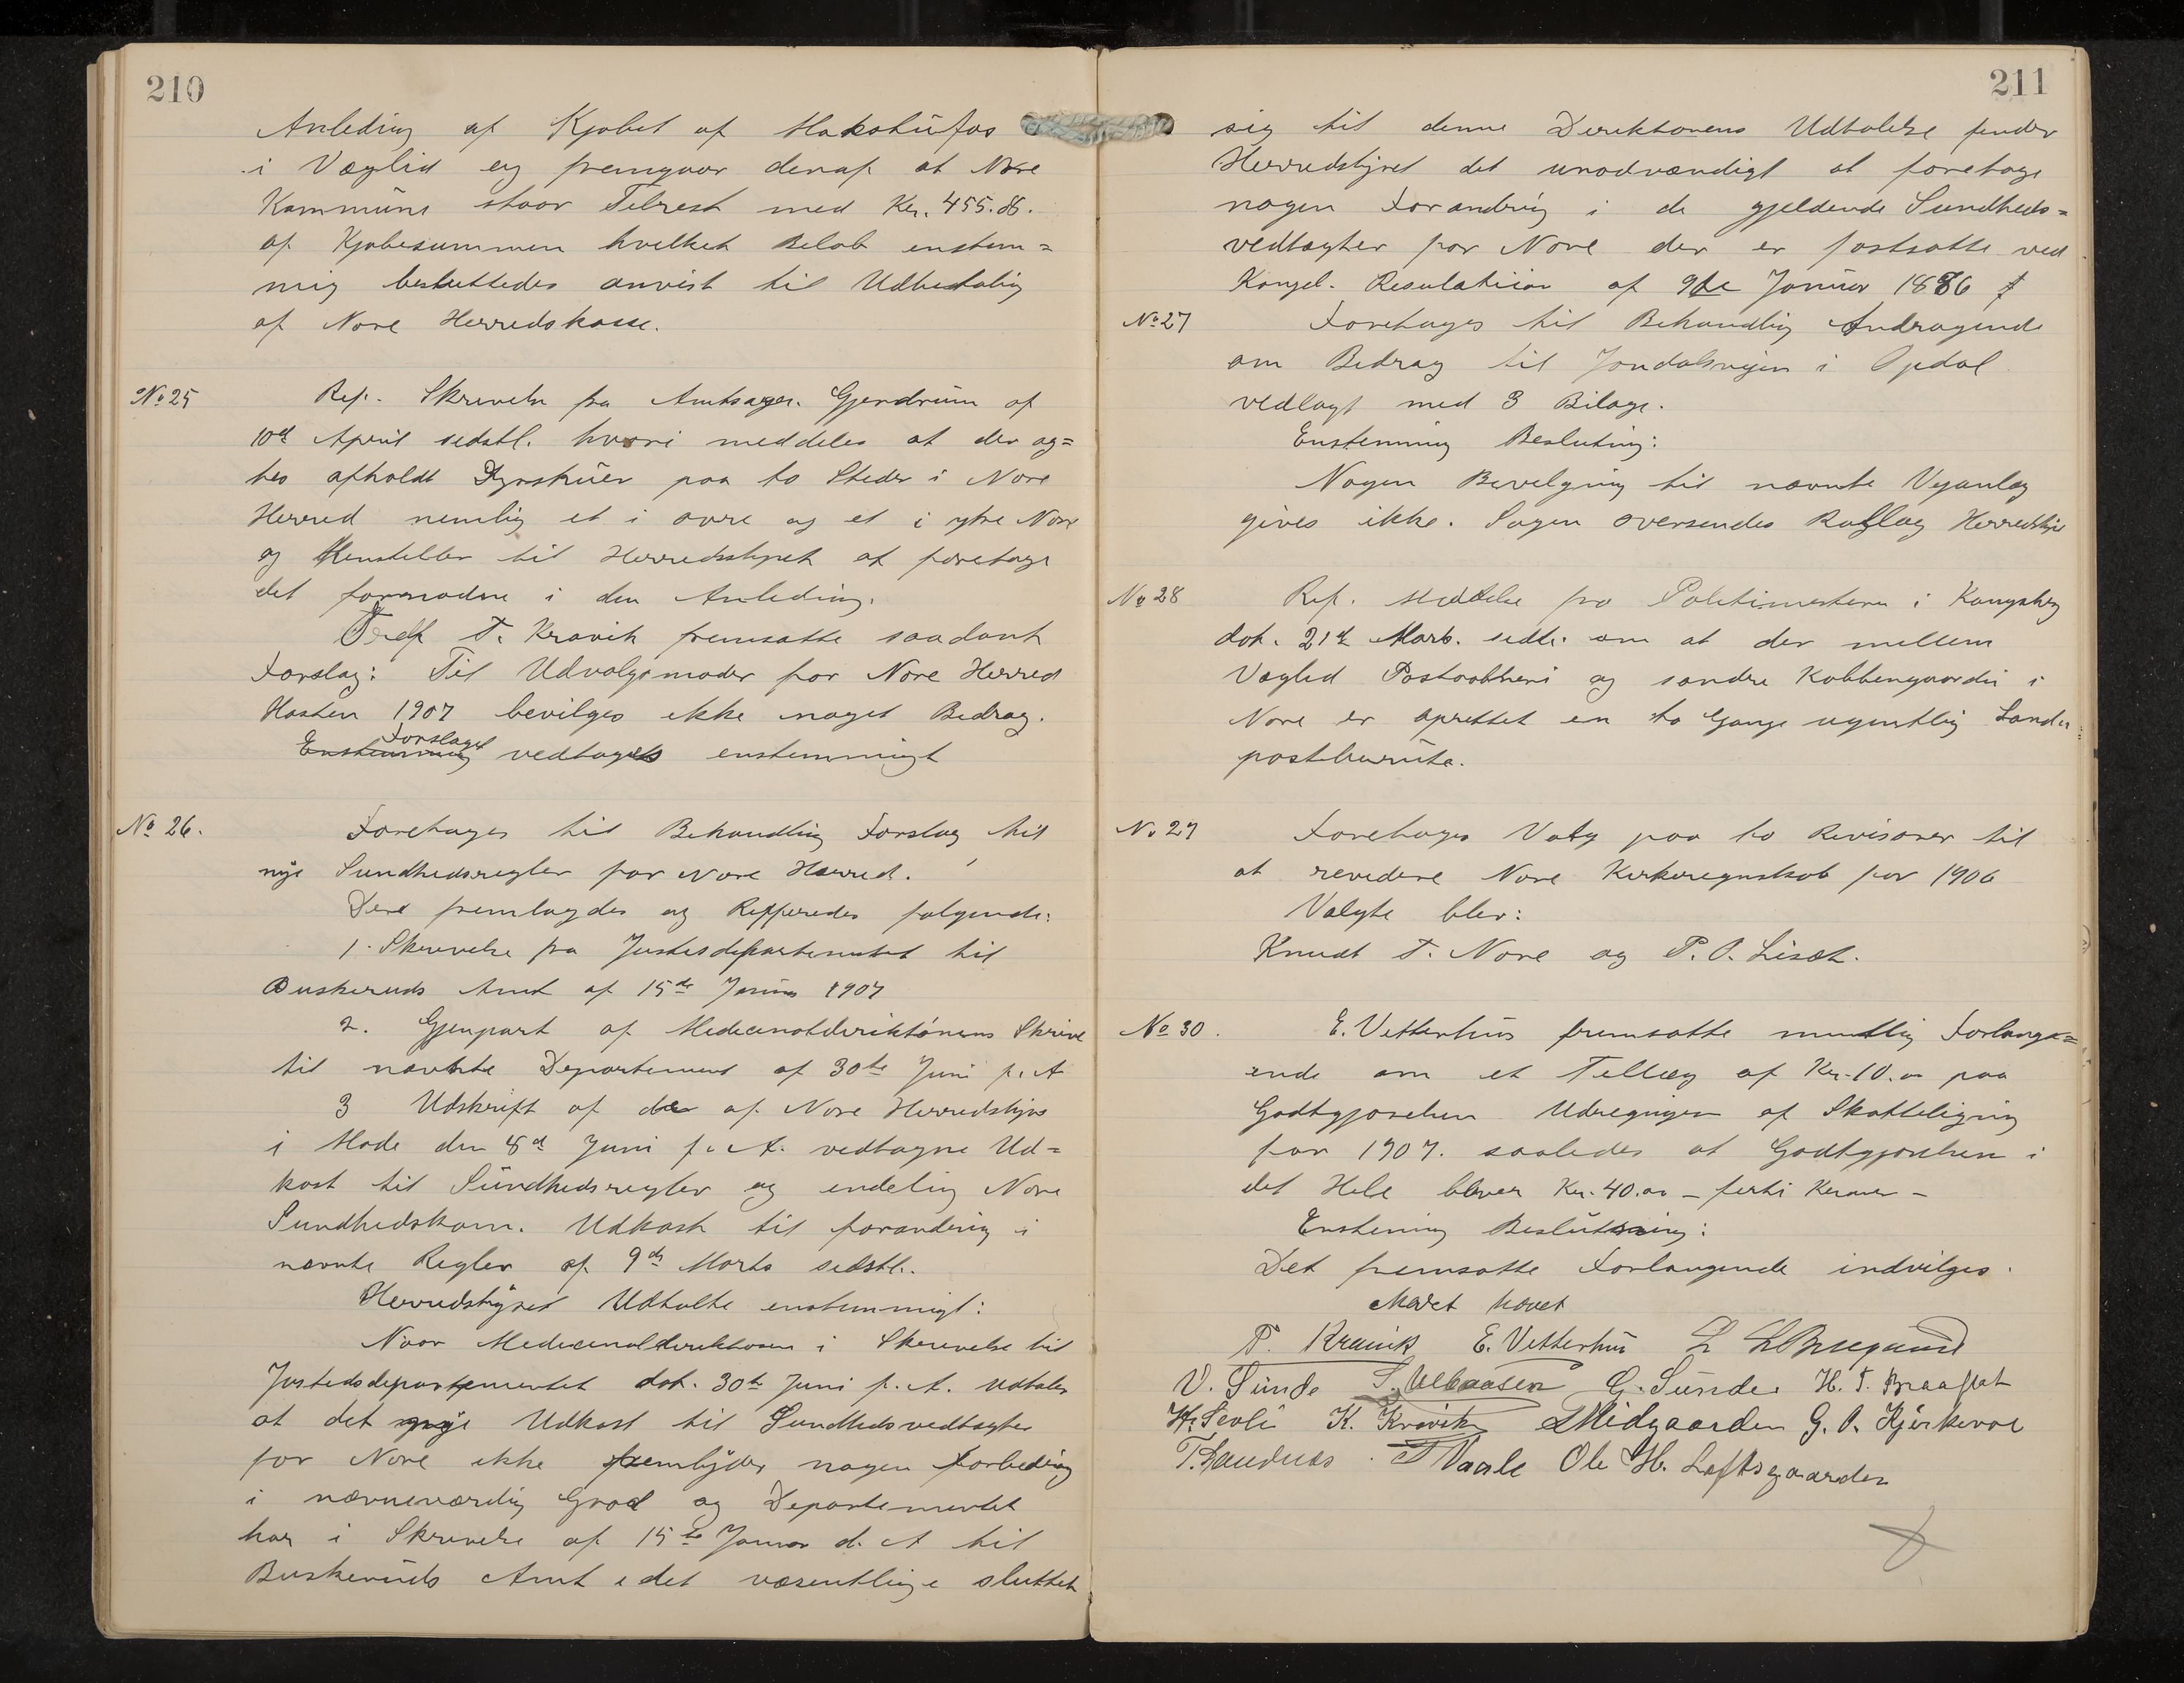 210
Anleding af Kjøbet af Makatufos
i Væglid og fremgaar deraf at Nore
Kommune staar Tilrest med Kr. 455.86.
af Kjøbesummen hvilket Beløb enstem=
mig besluttedes anvist til Udbetaling
af Nore Herredskasse.
No 25
Ref. Skrivelse fra Amtsagr. Gjendrum af
10de April sidstl. hvori meddeles at der ag=
tes afholdt Dyrskuer paa to Steder i Nore
Herred nemlig et i øvre og et i ytre Nore
og Henstiller til Herredsstyret at foretage
det fornødne i den Anleding.
Ordf T. Kravik fremsatte saadant
Forslag: Til Udvalgsmøder for Nore Herred
Høsten 1907 bevilges ikke noget Bedrag.
Forslaget
Enstemmig vedtages enstemmigt
No 26.
Foretages til Behandling Forslag til
nye Sundhedsregler for Nore Herred.
Der fremlagdes og Reffereedes følgende:
1. Skrivelse fra Justisdepartemetet til
Buskeruds Amt af 15de Januar 1907
2. Gjenpart af Medecinaldirektørens Skrive
til nævnte Departement af 30te Juni f. A
3 Udskrift af de af Nore Herredstyre
i Møde den 8de Juni f. A. vedtagne Ud=
kast til Sundhedsregler og endelig Nore
Sundhedskom. Udkast til forandring i
nævnte Regler af 9de Marts sidstl.
Herredstyret Udtalte enstemmigt:
Naar Medicinaldirektøren i Skrivelse til
Justidsdepartementet dat. 30te Juni f. A. Udtaler
at det nye Udkast til Sundhedsvedtægter
for Nore ikke frembyder nogen forbedring
i nævneværdig Grad og Departementet
har i Skrivelse af 15de Januar d. A til
Buskeruds Amt i det væsentlige sluttet
211
sig til denne Direktørens Udtalelse finder
Herredstyret det unødvændigt at foretage
nogen Forandring i de gjeldende Sundheds=
vedtægter for Nore der er fastsatte ved
Kongel. Resolution af 9de Januar 1886
No 27
Foretages til Behandling Andragende
om Bedrag til Jondalsveien i Opdal
vedlagt med 3 Bilage.
Enstemmig Beslutning:
Nogen Bevilgning til nævnte Vejanlæg
gives ikke. Sagen oversendes Rollag Herredstyre
No 28
Ref. Meddelelse fra Politimesteren i Kongsberg
dat. 21de Marts. sidtl. om at der mellem
Væglid Postaabneri og søndre Kobbergaarden i
Nore er oprettet en to Gange ugentlig Lande=
postburute.
No 29
Foretages Valg paa to Revisorer til
at revedere Nore Kirkeregnskab for 1906
Valgte blev:
Knudt T. Nore og P. O. Liset.
No 30.
E. Vetterhus fremsatte mundtlig Forlang=
ende om et Tillæg af Kr. 10.00 paa
Godtgjørelsen Udregnigen af Skatteligning
for 1907. saaledes at Godtgjørelsen i
det Hele bliver Kr. 40.00 – førti Kroner –
Enstemig Beslutning:
Det fremsatte Forlangende indvilges.
Mødet hævet
T. Kravik E. Vetterhus
V. Sunde G. Sunde H. T. Braaflat
H. Sevli K. Kravik Midgaarden G. O. Kjerkevoe
T. Sandnes T Vaale Ole H. Loftsgaarden